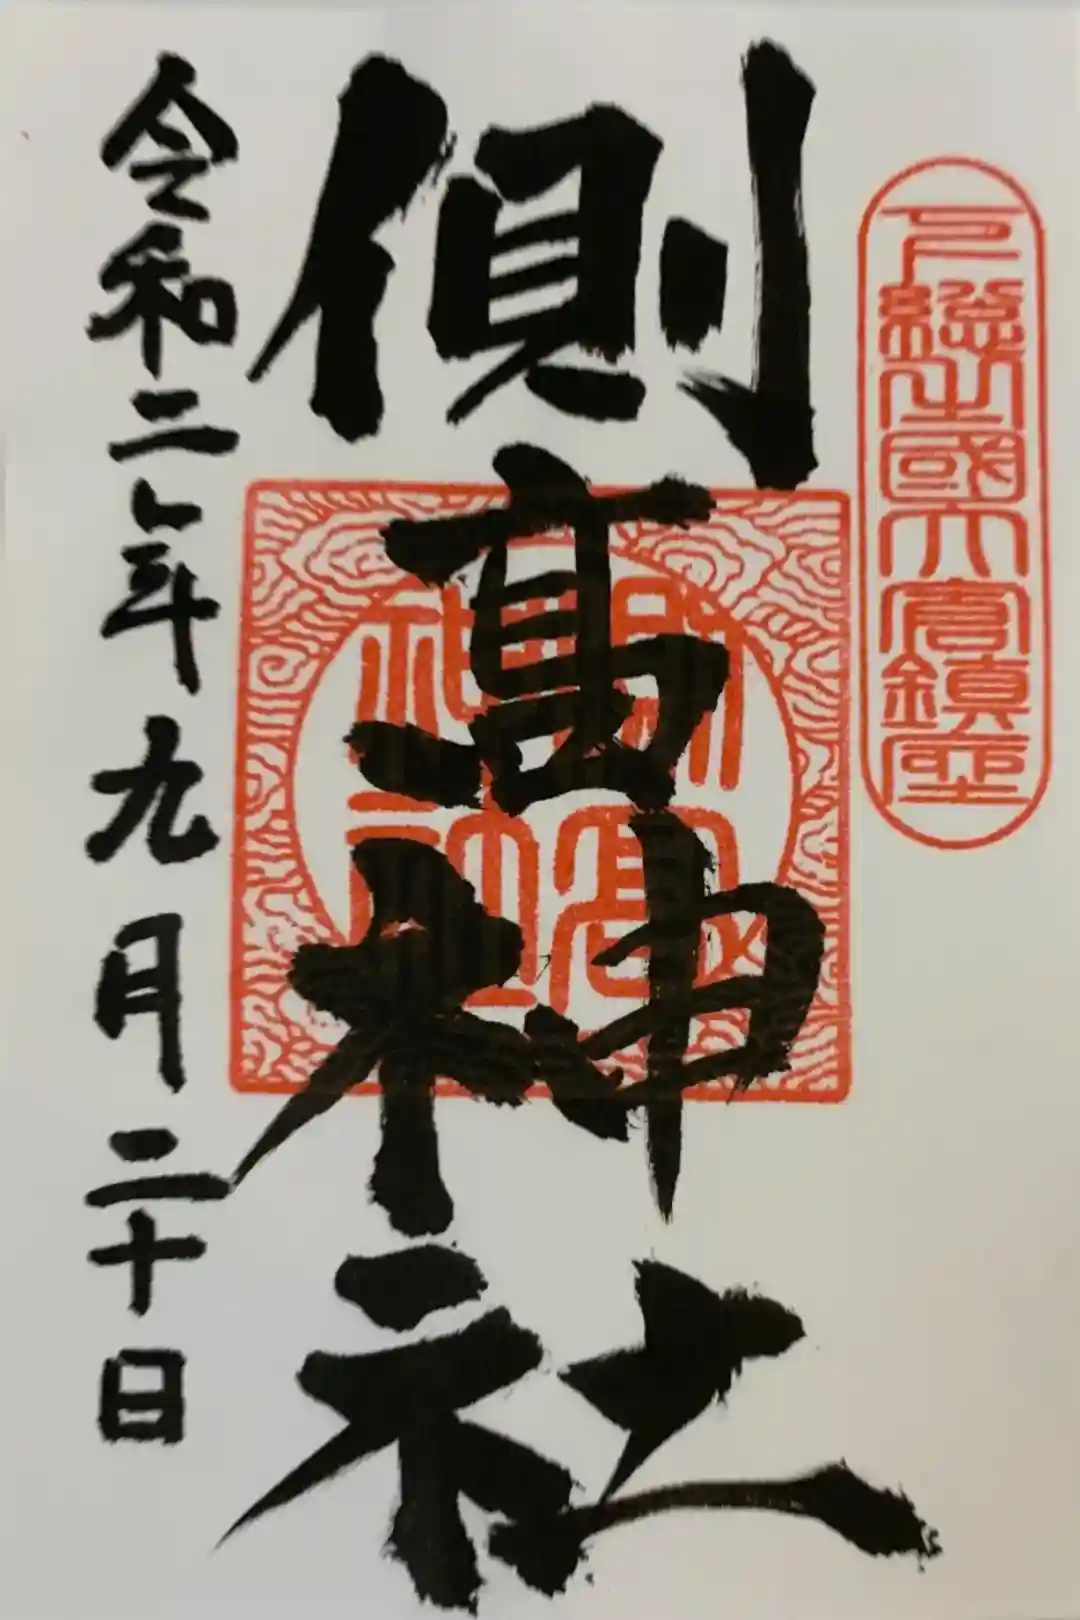 下總之國大倉鎮座
側髙神社
側髙神社
令和二年九月二十日